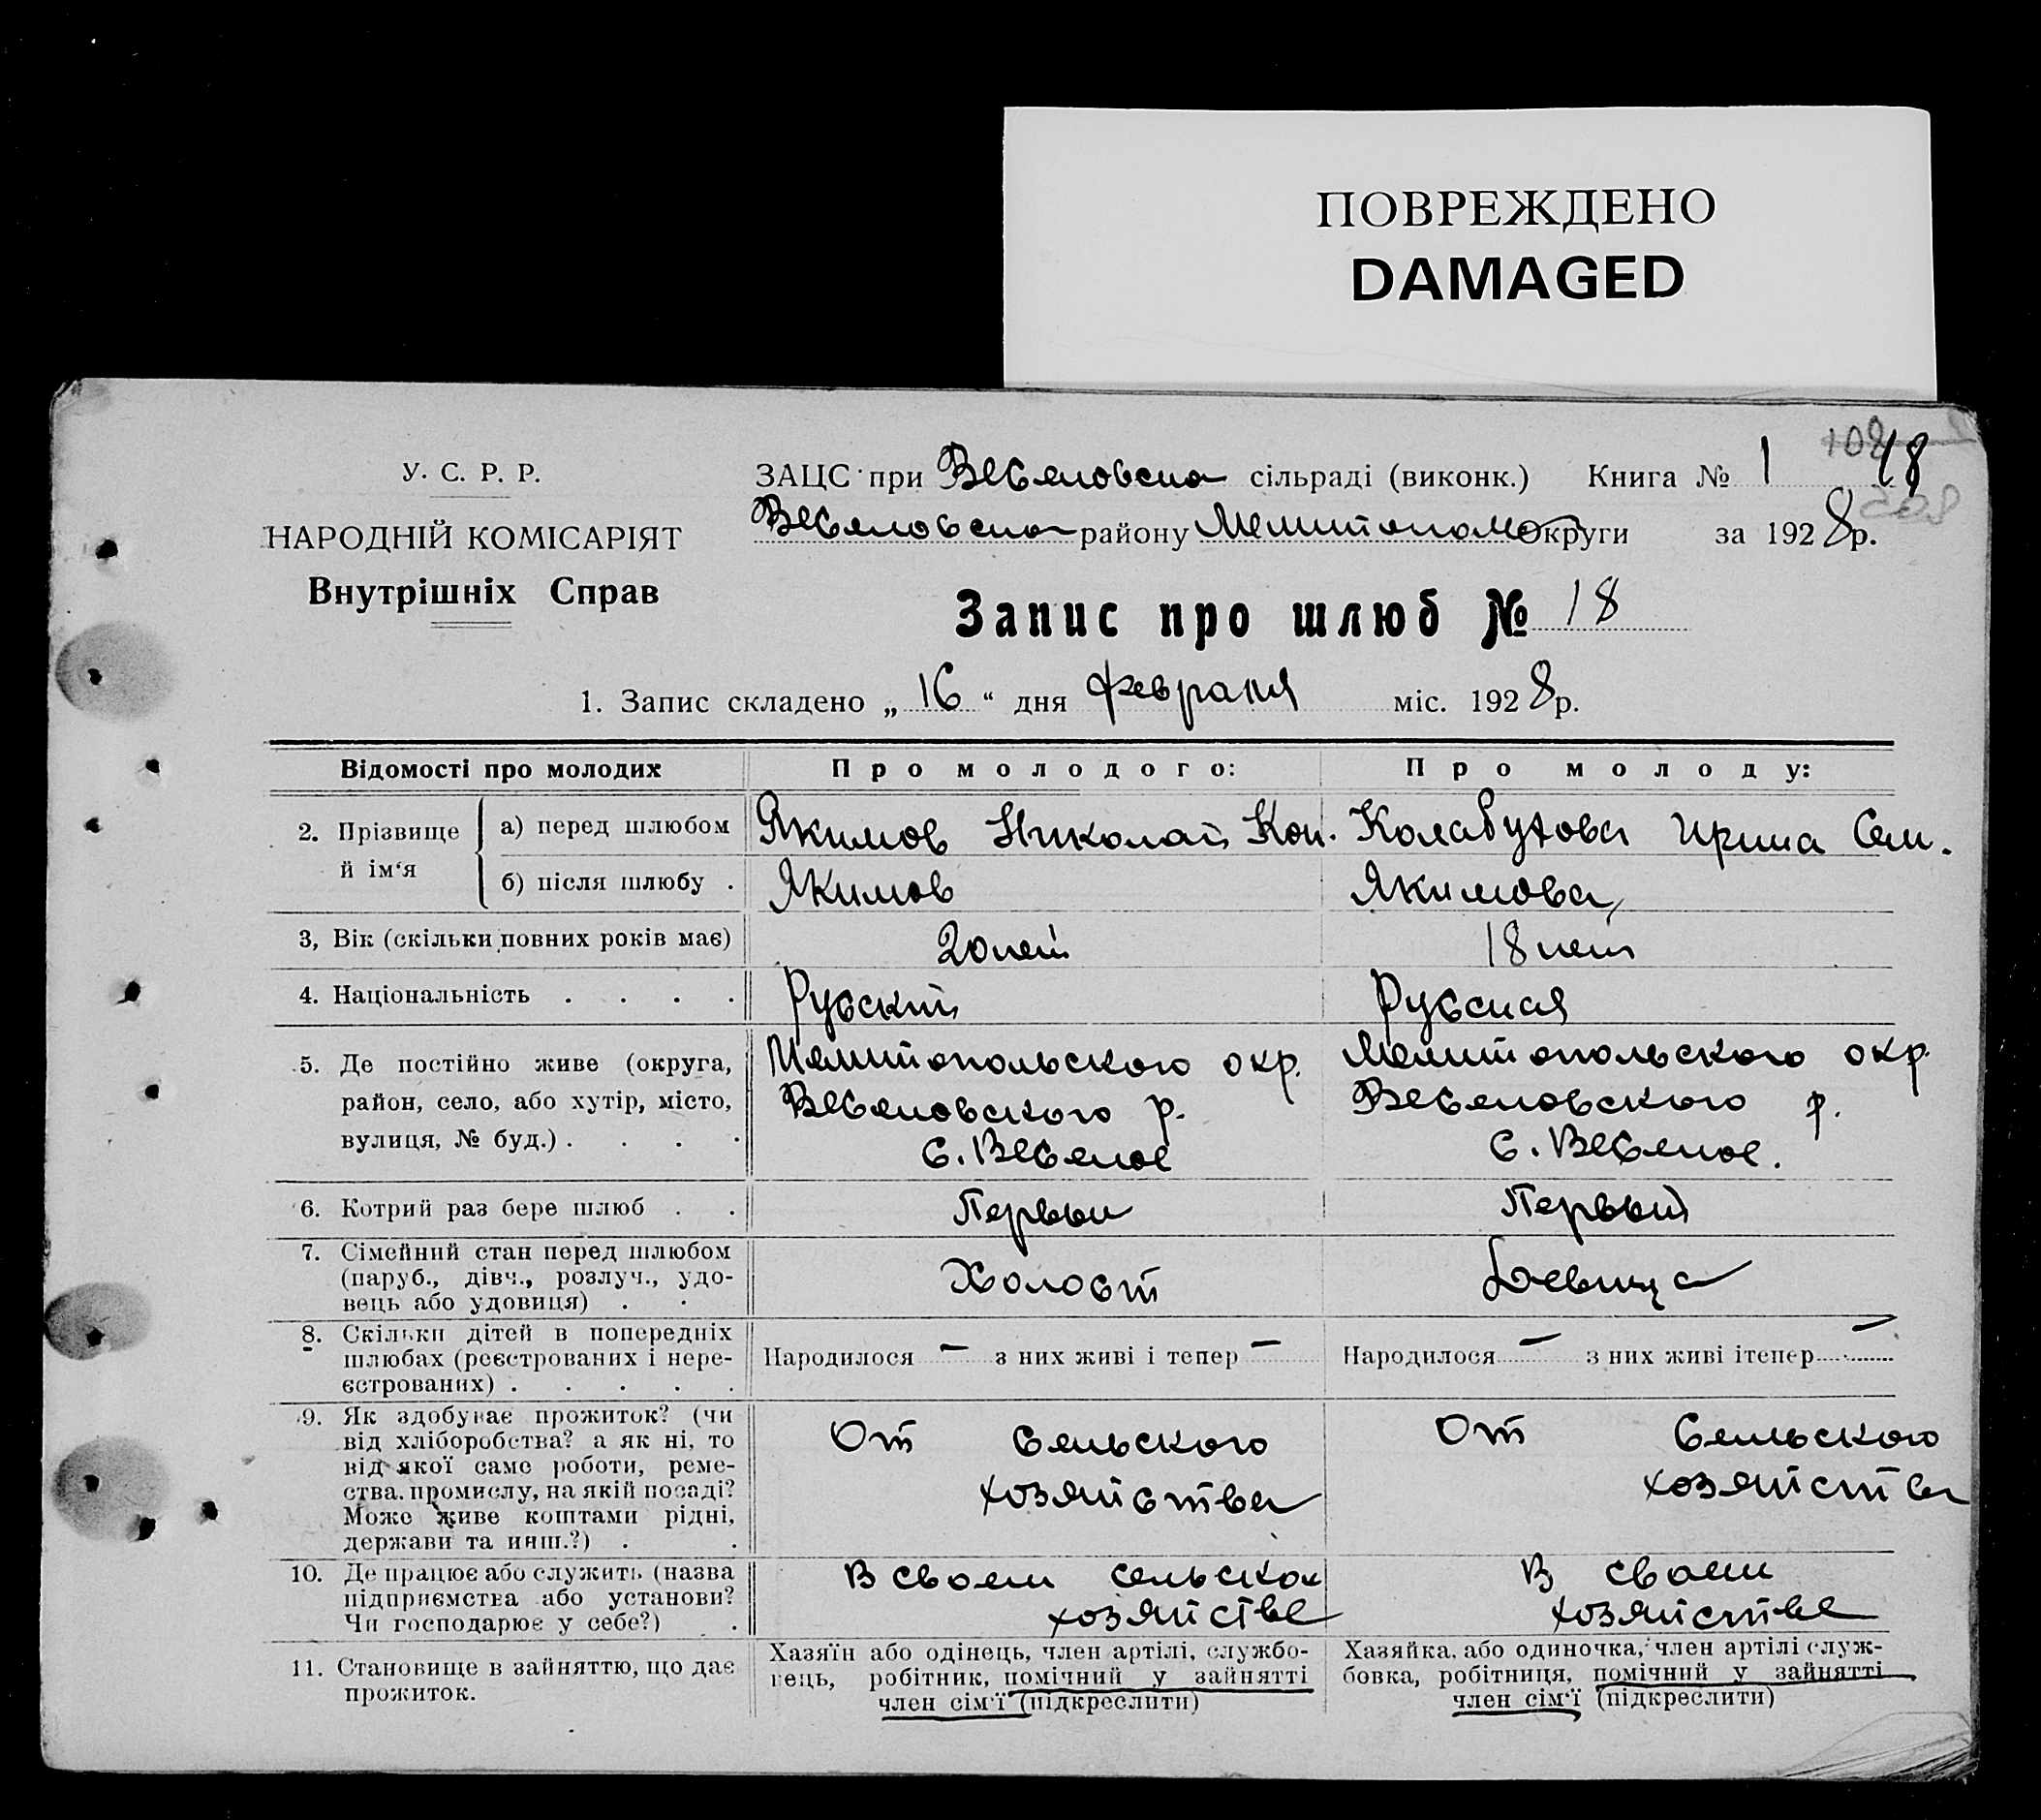 ПОВРЕЖДЕНО
DAMAGED
У. С. Р. Р.
НАРОДНІЙ КОМІСАРІЯТ
Внутрішніх Справ
ЗАЦС при Веселовско сільраді (виконк.) Книга № 1 48
Веселовско району Мелитополь округи за 1928 р.
Запис про шлюб № 18
1. Запис складено „16“ дня февраля міс. 1928 р.
Відомості про молодих Про молодого: Про молоду:
2. Прізвище й ім‘я а) перед шлюбом Якимов Николай Кон. Калабухова Ирина Сем.
б) після шлюбу . Якимов Якимова
3, Вік (скільки повних років має) 20 лет 18 лет
4. Національність . . . . Русский Русская
5. Де постійно живе (округа, Мелитопольского окр. Мелитопольского окр.
район, село, або хутір, місто, Веселовского р. Веселовского р.
вулиця, № буд.) . . . . с. Веселое с. Веселое.
6. Котрий раз бере шлюб . . Первый Первый
7. Сімейний стан перед шлюбом
(паруб., дівч., розлуч., удо- Холост Девица
вець або удовиця) . .
8. Скільки дітей в попередніх
шлюбах (реєстрованих і нере- Народилося — з них живі і тепер — Народилося — з них живі ітепер —
єстрованих) . . . . .
9. Як здобуває прожиток? (чи
від хліборобства? а як ні, то От сельского От сельского
від якої саме роботи, реме-
ства, промислу, на якій посаді? хозяйства хозяйства
Може живе коштами рідні,
держави та инш.?) . .
10. Де працює або служить (назва В своем сельском В своем
підприємства або установи?
Чи господарює у себе?) . . хозяйстве хозяйстве
11. Становище в зайняттю, що дає
прожиток.
Хазяїн або одінець, член артілі, службо-
вець, робітник, помічний у зайнятті
член сім‘ї (підкреслити)
Хазяйка, або одиночка, член артілі служ-
бовка, робітниця, помічний у зайнятті
член сім‘ї (підкреслити)